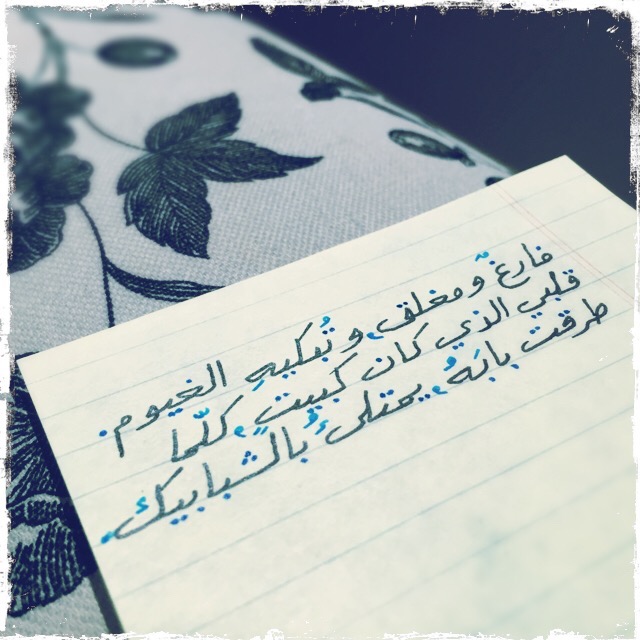 فارغٌ ومغلق، وتُبكيهِ الغيوم.
قلبي الذي كان كبيتٍ، كلّما
طرقت بابَهُ، يمتلئُ بالشبابيك.